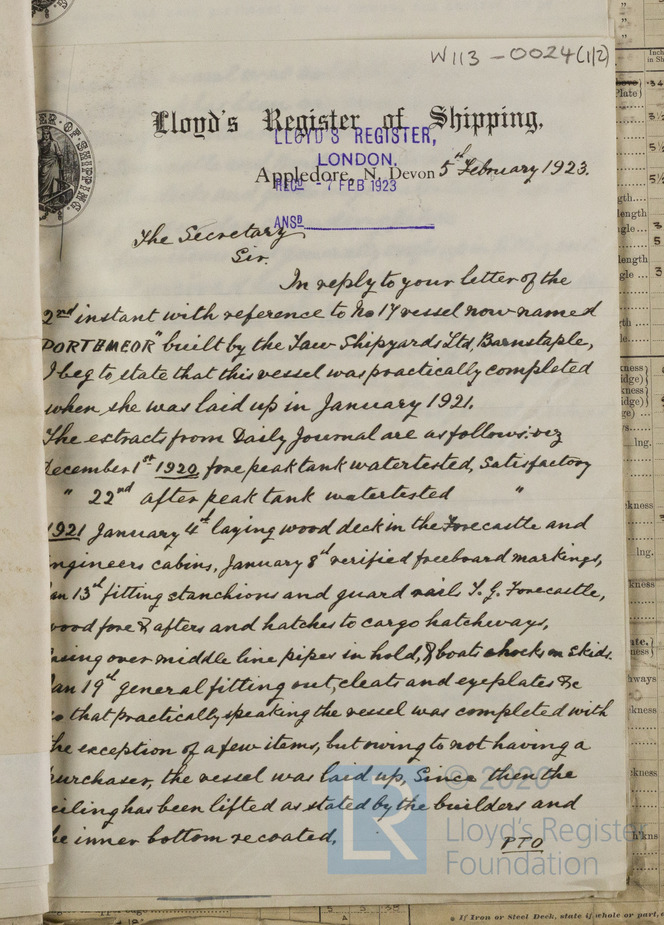 W113-0024(1/2)
Lloyd's Register of Shipping,
LLOYD'S REGISTER,
LONDON.
Appledore, N. Devon 5th February 1923.
RECD - 7 FEB 1923
ANSD
The Secretary
Sir.
In reply to your letter of the
2nd instant with reference to No 17 vessel now named
PORTHMEOR" built by the Taw Shipyards Ltd, Barnstaple,
I beg to state that this vessel was practically completed
when she was laid up in January 1921.
The extracts from Daily Journal are as follows: viz
December 1st 1920, fore peak tank watertested, Satisfactory
" 22nd after peak tank watertested "
1921 January 4th laying wood deck in the Forecastle and
ngineers cabins, January 8th verified freeboard markings,
an 13th fitting stanchions and guard rails T. G. Forecastle,
ood fore & afters and hatches to cargo hatchways,
asing over middle line pipes in hold, & boats chocks on skids.
an 19th general fitting out, cleats and eyeplates &c
so that practically speaking the vessel was completed with
he exception of a few items, but owing to not having a
urchaser, the vessel was laid up, Since then the
eiling has been lifted as stated by the builders and
he inner bottom recoated,
PTO
LR © 2020
Lloyd's Register
Foundation
If Iron or Steel Deck, state if whole or part,